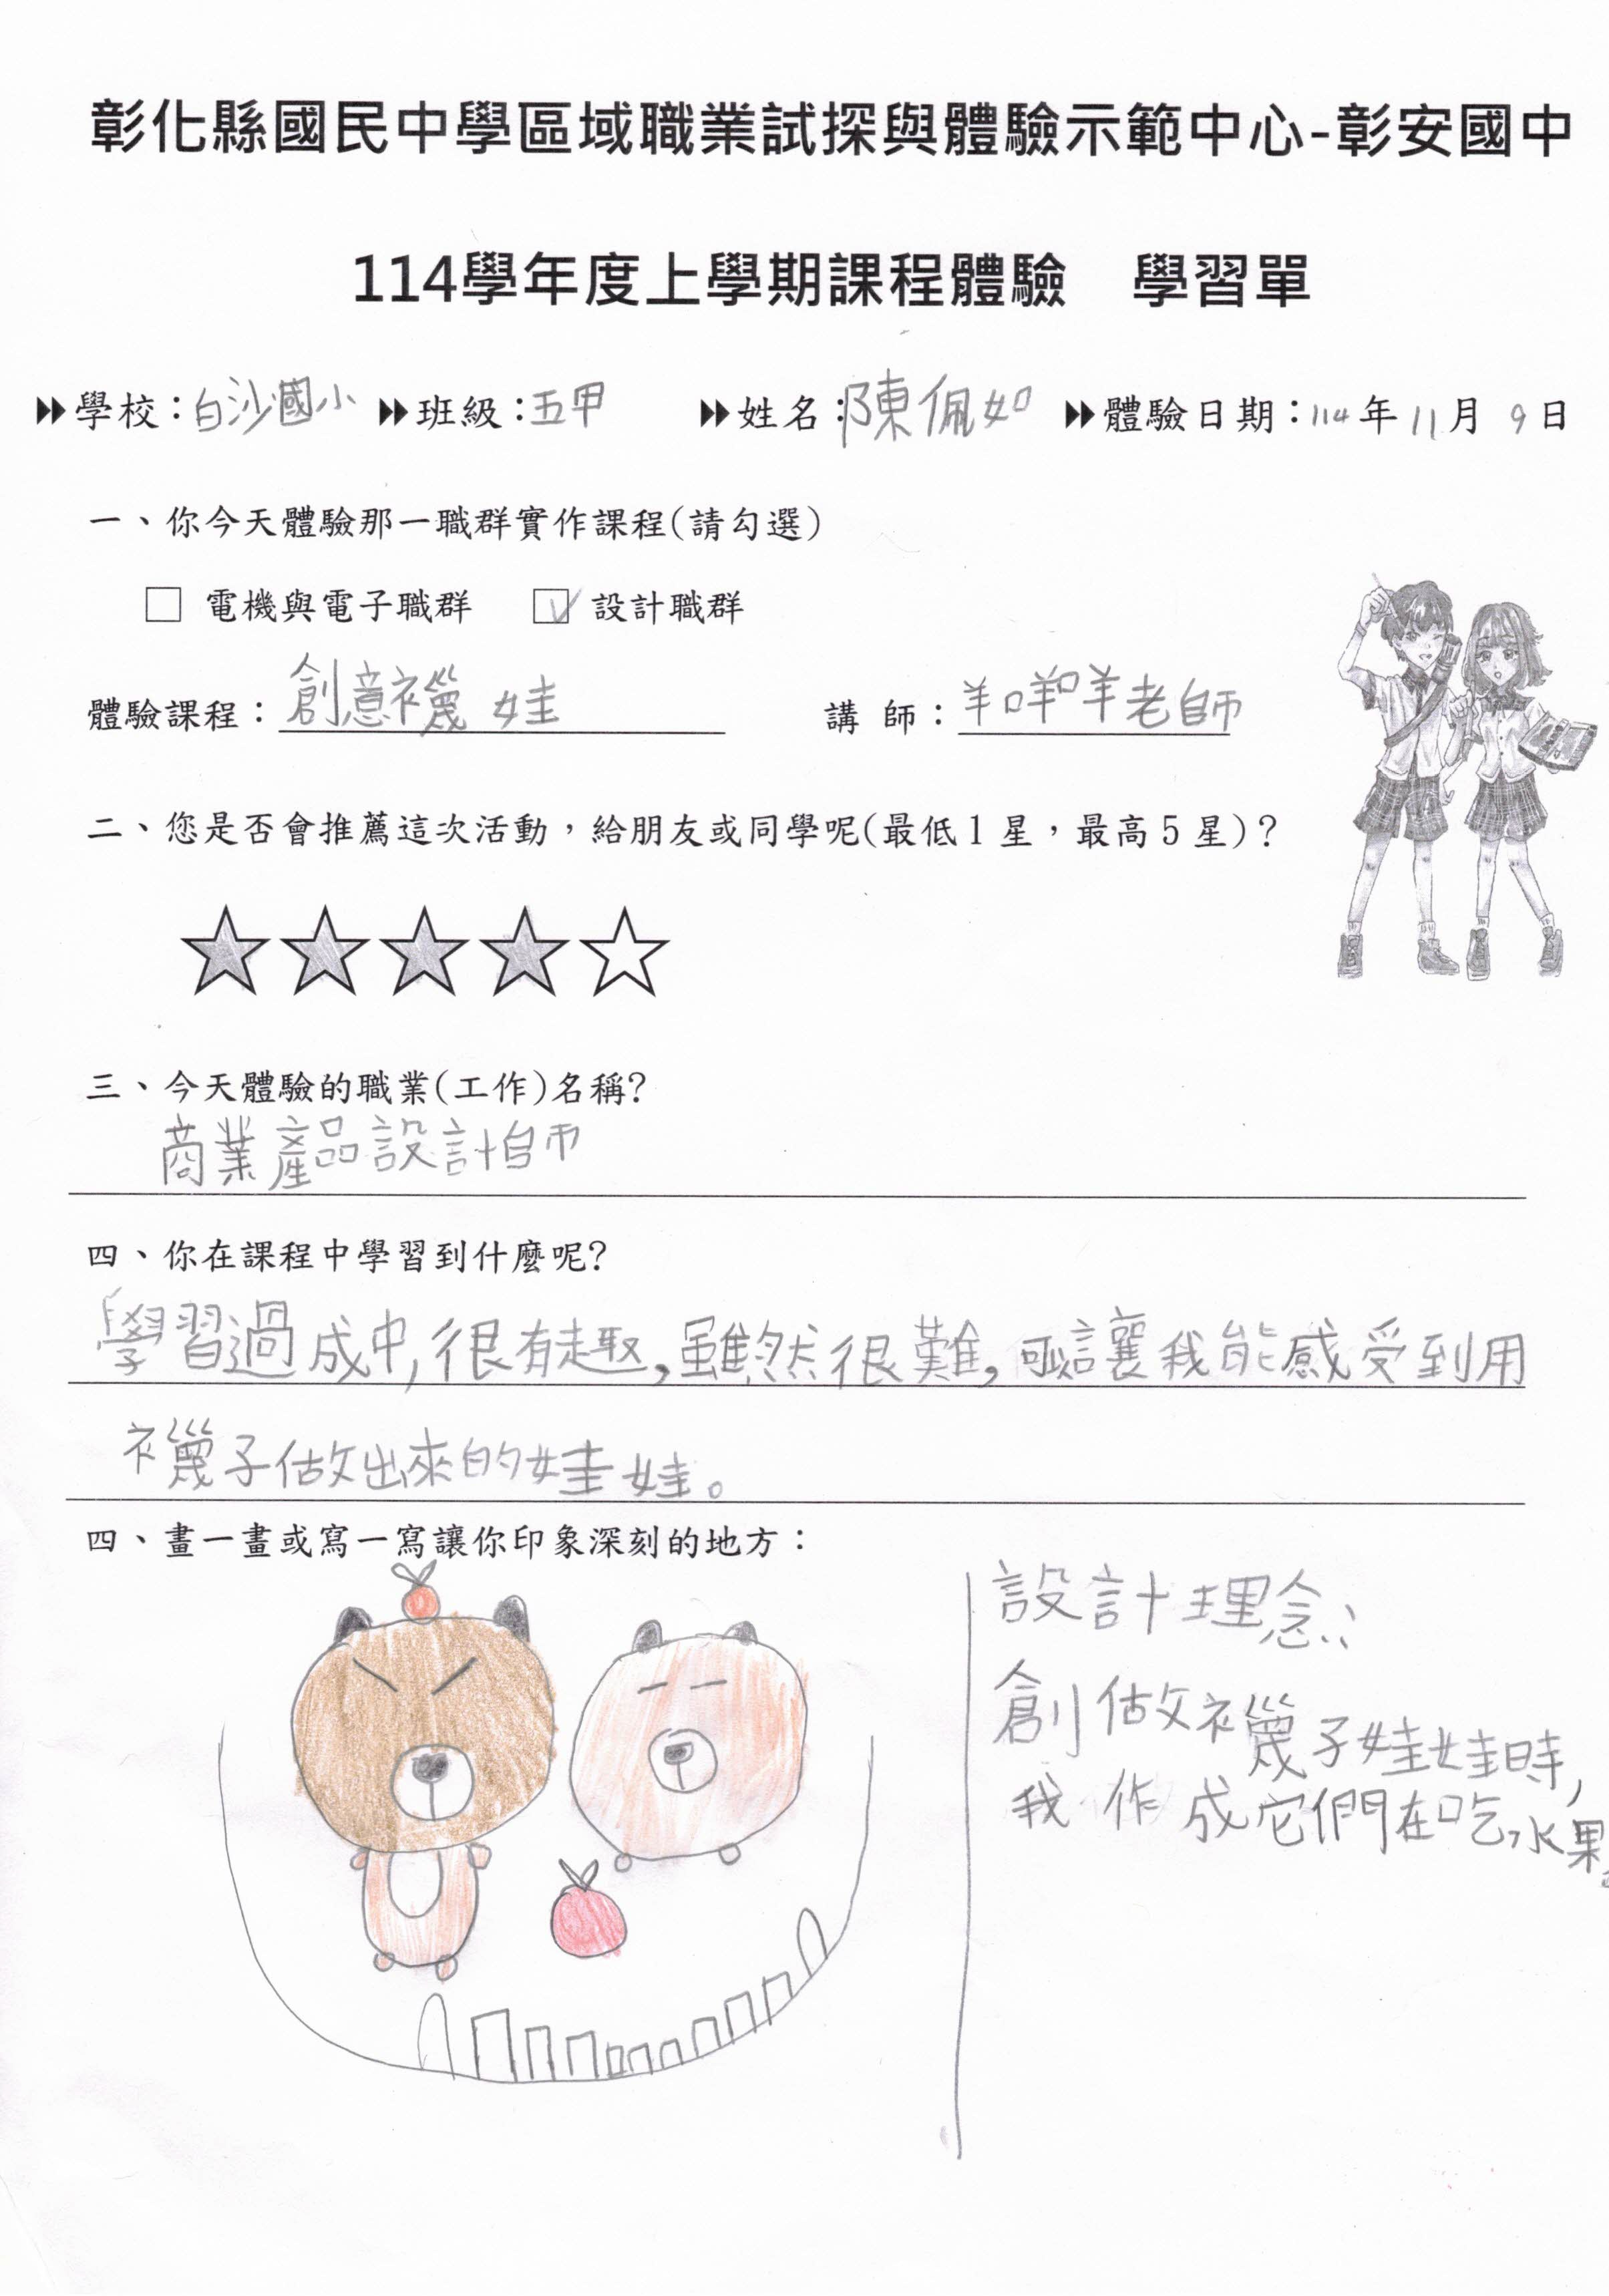 彰化縣國民中學區域職業試探與體驗示範中心-彰安國中
114學年度上學期課程體驗 學習單
學校：白沙國小 班級：五甲 姓名：陳佩如 體驗日期：114年11月9日
一、你今天體驗那一職群實作課程(請勾選)
□ 電機與電子職群 ☑ 設計職群
體驗課程：創意襪娃 講 師：羊咩羊老師
二、您是否會推薦這次活動，給朋友或同學呢(最低1星，最高5星)？
三、今天體驗的職業(工作)名稱?
商業產品設計師
四、你在課程中學習到什麼呢?
學習過成中,很有趣,雖然很難,可讓我能感受到用
襪子做出來的娃娃。
四、畫一畫或寫一寫讓你印象深刻的地方：
設計理念:
創做襪子娃娃時,
我作成它們在吃水果。